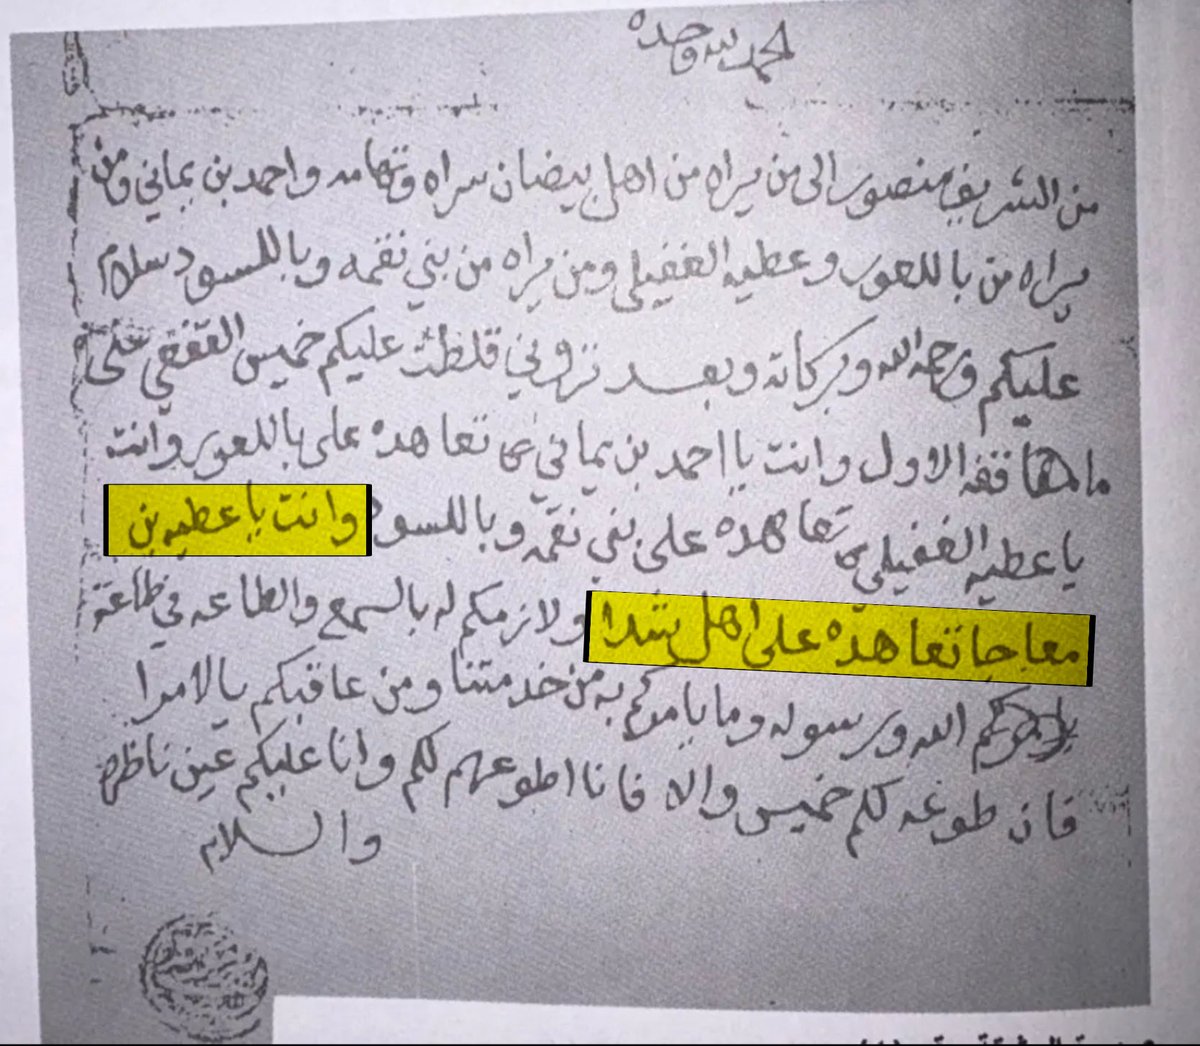 الحمد لله وحده
من الشريف منصور الى من يراه من اهل بيضان سراه وتهامه واحمد بن يماني ومن
يراه من باللعور وعطيه الغفيلي ومن يراه من بني نقمه وباللسود سلام
عليكم ورحمة الله وبركاته وبعد تروني قلطت عليكم خميس القفقفي على
ما هقفه الاول وانت يا احمد بن يماني تعاهده على باللعور وانت
يا عطيه الغفيلي تعاهده على بني نقمه وباللسود وانت يا عطيه بن
معاجا تعاهده على اهل شدا ولازمكم له بالسمع والطاعه في طاعة
الله ورسوله وما يامركم به من خدمتنا ومن عاقبكم يالامرا
فان طوعه لكم خميس والا فانا اطوعهم لكم وانا عليكم عين ناظره
والسلام